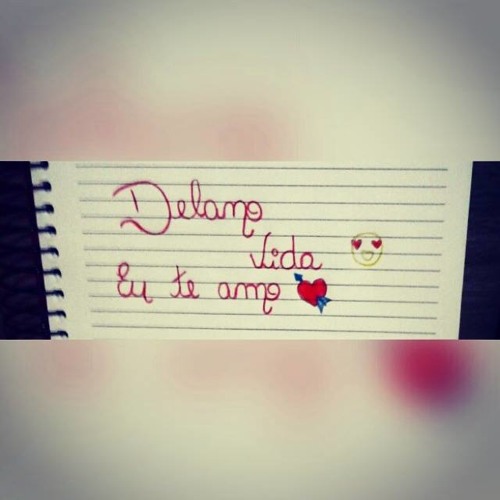 Delano
Vida
Eu te amo